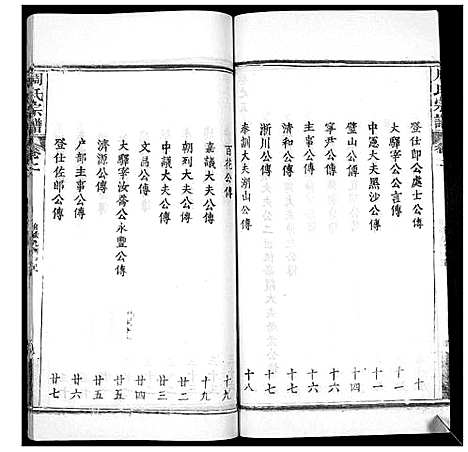 周氏宗譜
卷之一
登仕郎公處士公傳 十
大驛宰公公言傳 十一
中憲大夫黑沙公傳 十一
璧山公傳 十四
寧尹公傳 十六
主事公傳 十六
清和公傳 十七
浙川公傳 十七
奉訓大夫湖山公傳 十八
百花公傳 十九
嘉議大夫公傳 十九
朝列大夫公傳 廿二
中議大夫公傳 廿三
文昌公傳 廿四
大驛宰汝喬公永豐公傳 廿五
濟源公傳 廿五
户部主事公傳 廿六
登仕佐郎公傳 廿七
周氏宗譜
卷之一